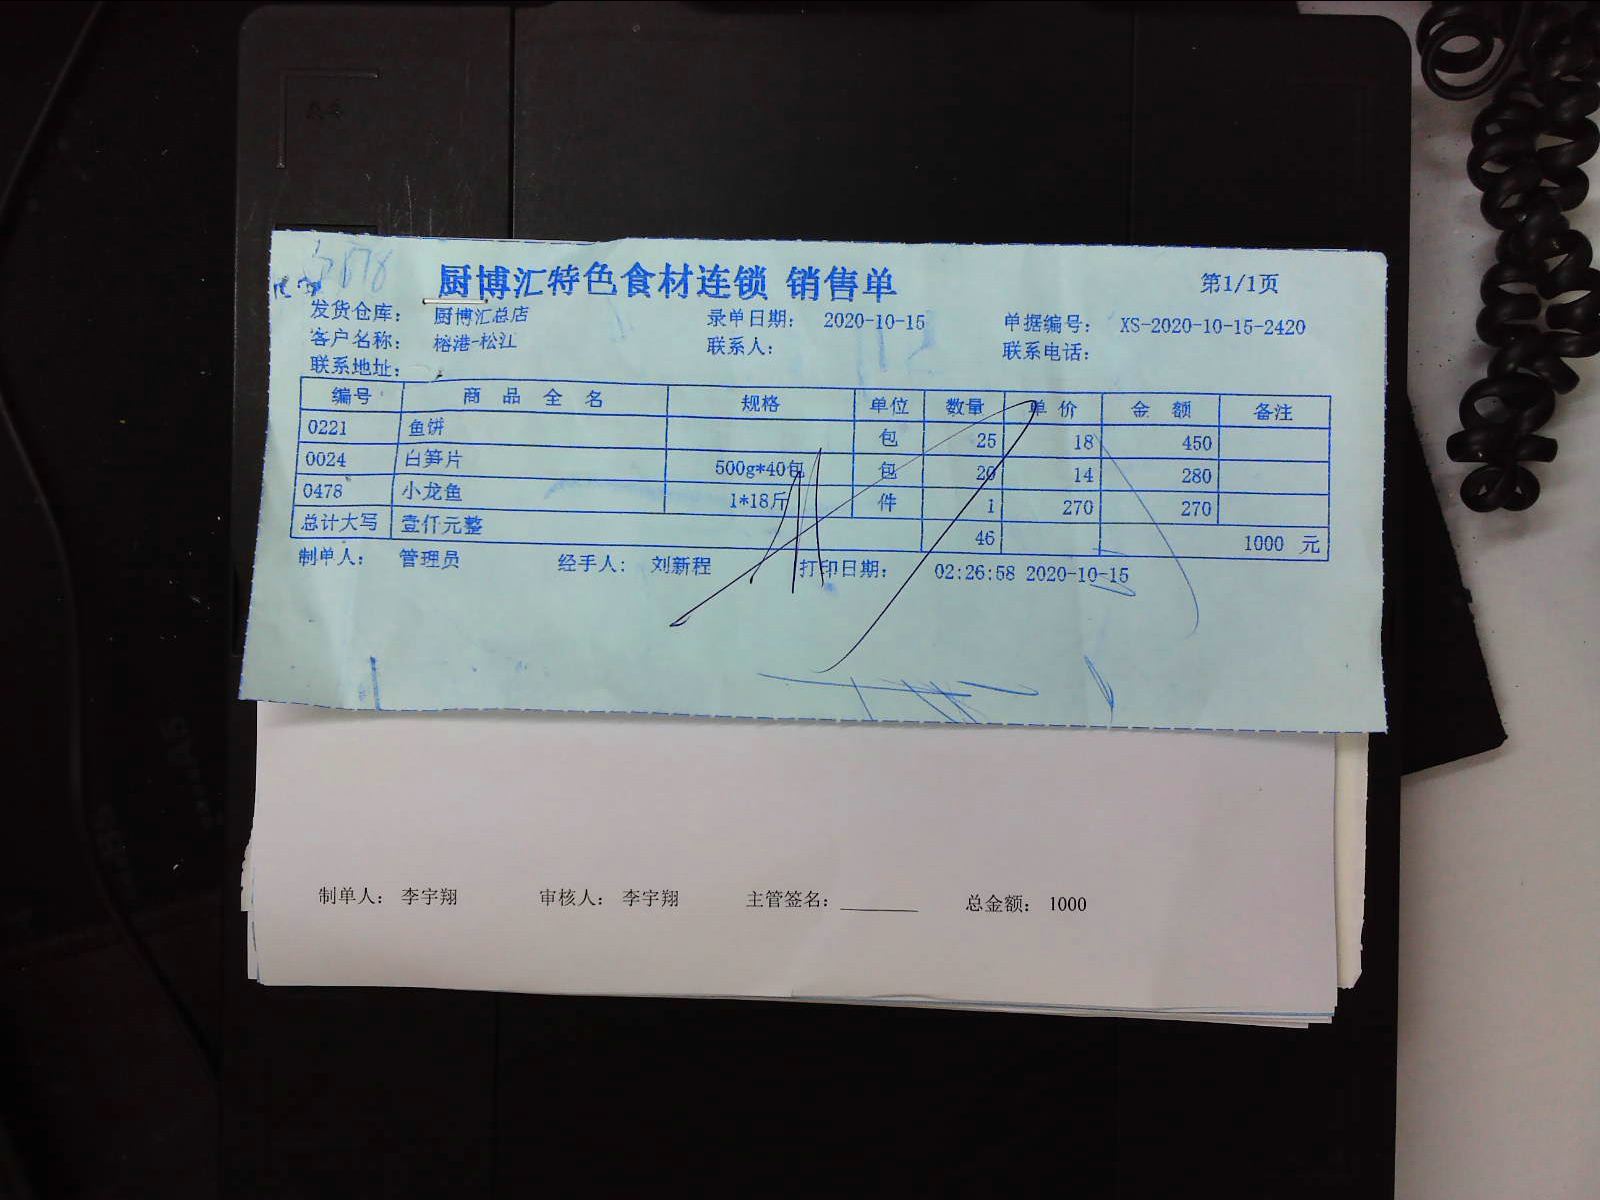 厨博汇特色食材连锁 销售单 第1/1页
发货仓库： 厨博汇总店 录单日期： 2020-10-15 单据编号： XS-2020-10-15-2420
客户名称： 榕港-松江 联系人： 联系电话：
联系地址：
编号 商品全名 规格 单位 数量 单价 金额 备注
0221 鱼饼 包 25 18 450
0024 白笋片 500g*40包 包 20 14 280
0478 小龙鱼 1*18斤 件 1 270 270
总计大写 壹仟元整 46 1000 元
制单人： 管理员 经手人： 刘新程 打印日期： 02:26:58 2020-10-15
制单人： 李宇翔 审核人： 李宇翔 主管签名：________ 总金额： 1000